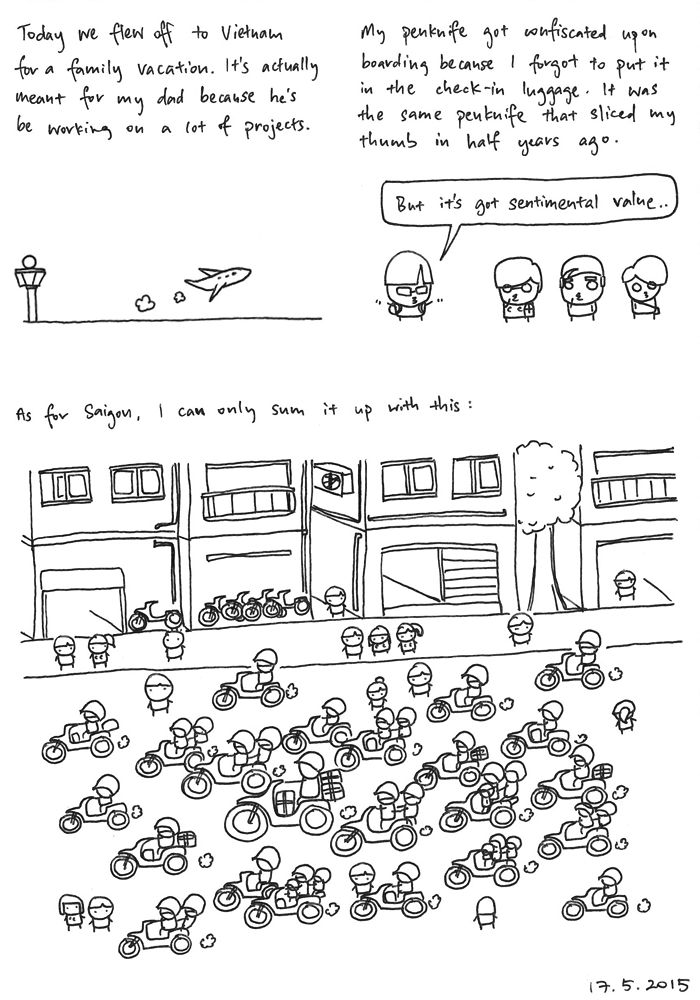 Today we flew off to Vietnam
for a family vacation. It's actually
meant for my dad because he's
be working on a lot of projects.
My penknife got confiscated upon
boarding because I forgot to put it
in the check-in luggage. It was
the same penknife that sliced my
thumb in half years ago.
But it's got sentimental value..
As for Saigon, I can only sum it up with this:
17.5.2015